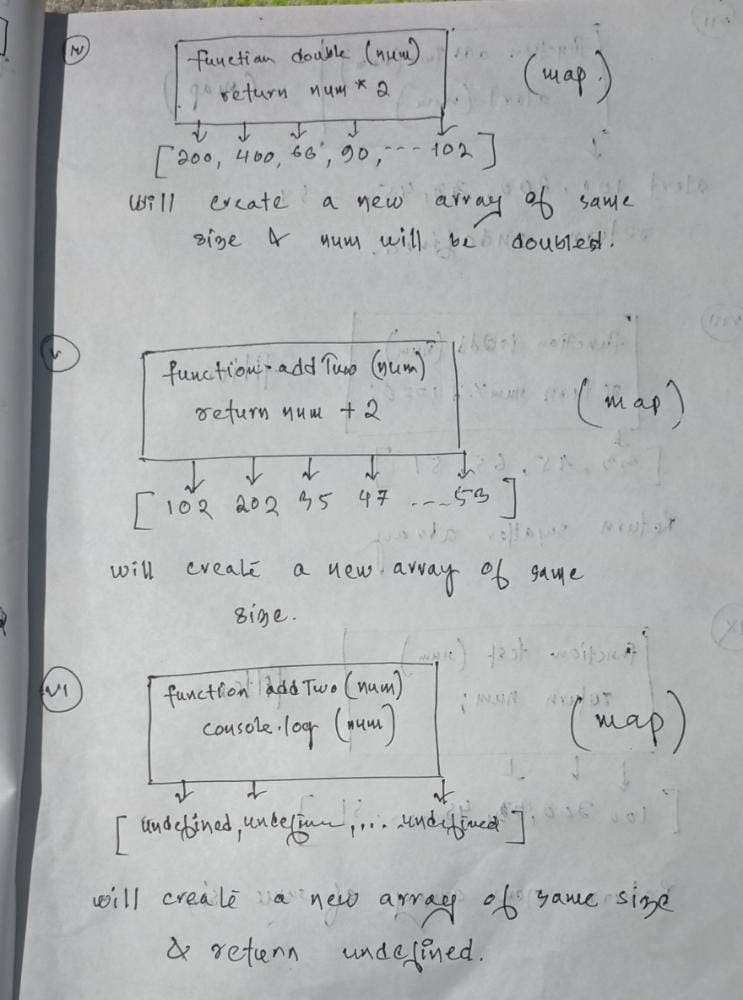 iv
function double (num)
return num * 2
(map)
[200, 400, 66, 90, --- 102]
will create a new array of same
size & num will be doubled.
v
function addTwo (num)
return num + 2
(map)
[102 202 35 47 ---53]
will create a new array of same
size.
vi
function addTwo (num)
console.log (num)
(map)
[undefined, undefine, ... undefined]
will create a new array of same size
& return undefined.